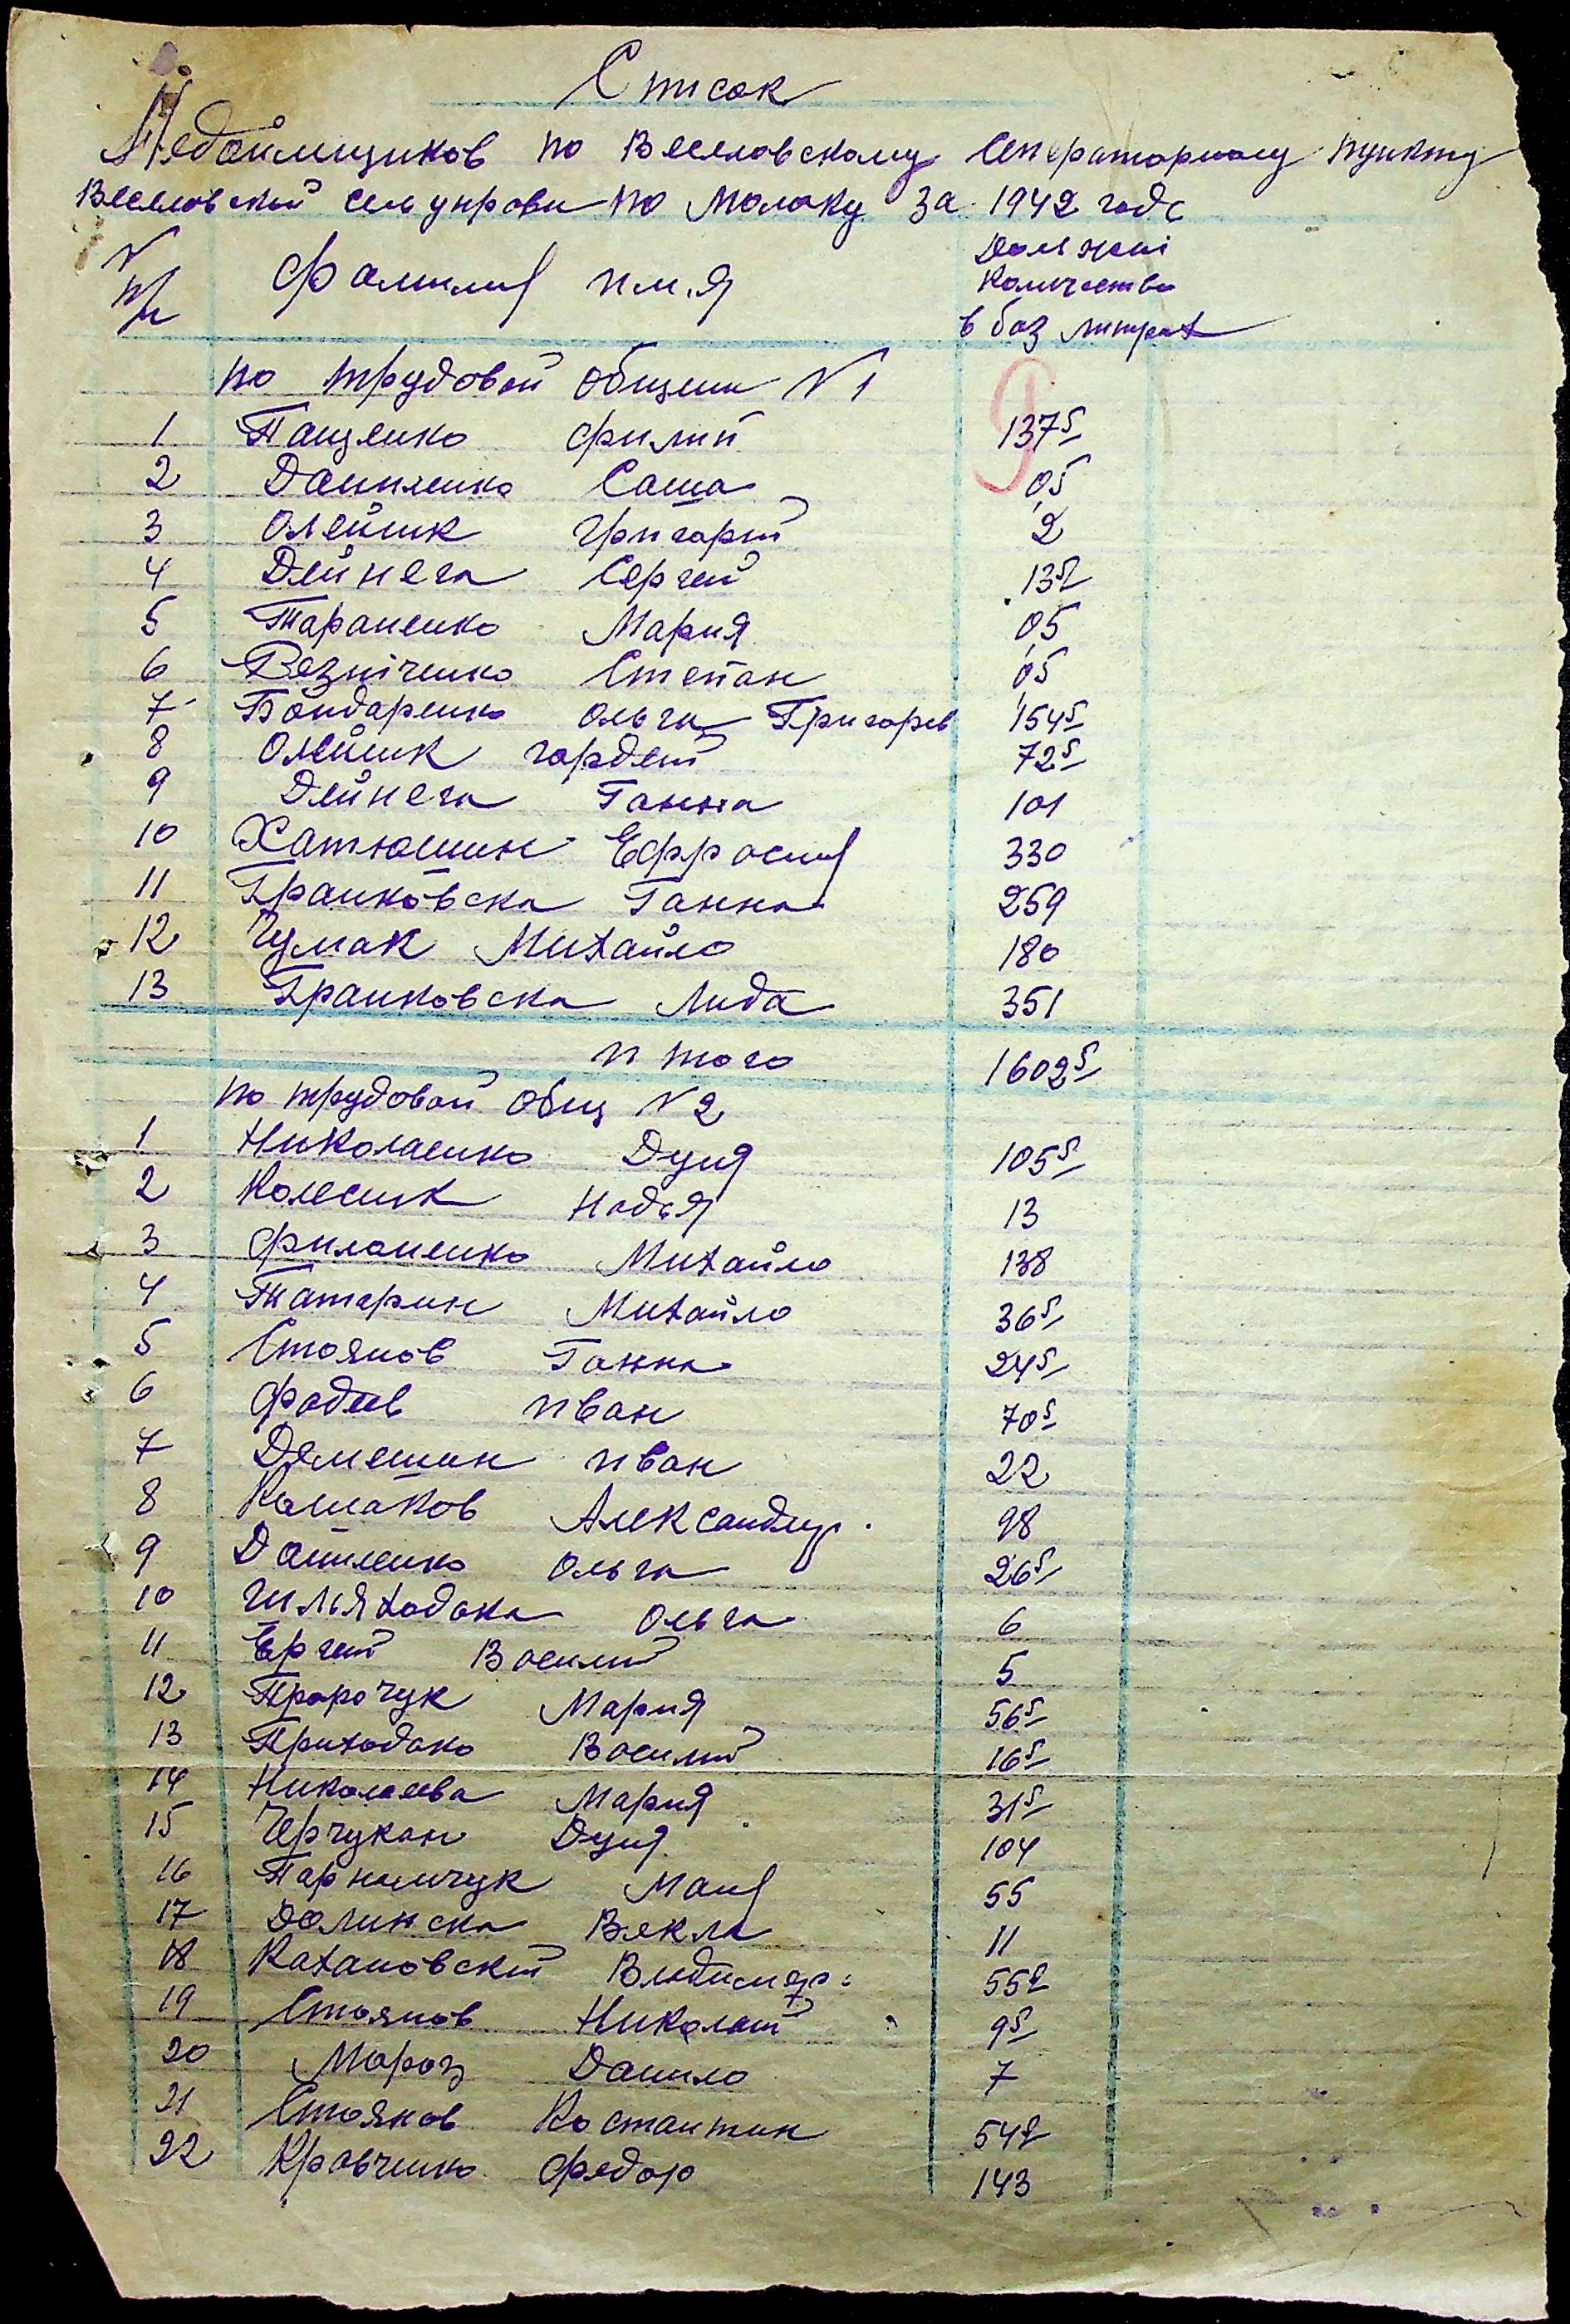 Список
Недоимщиков по Веселовскому Сепараторному пункту
Веселовской сель управи по молоку за 1942 года
N п/п Фамилия имя Должни количество в баз литрах
по трудовой общини N 1
1 Пащенко Филип 137⁵
2 Даниленко Саша 05
3 Олейник Григорий 2
4 Дейнега Сергей
5 Тараненко Мария 05
6 Резніченко Степан 05
7 Бондаренко Ольга Григорев 154⁵
8 Олейник Гордей 72⁵
9 Дейнега Ганна 101
10 Хатюшин Ефросия 330
11 Гранковска Ганна 259
12 Чумак Михайло 180
13 Гранковска Лида 351
итого 1602⁵
по трудовой общ N 2
1 Николаенко Дуня 105⁵
2 Колесник Надья 13
3 Филоненко Михайло 138
4 Татарин Михайло 36⁵
5 Стоянов Ганна 24⁵
6 Фадеев Иван 70⁵
7 Демешин Иван 22
8 Александр. 98
9 Даниленко Ольга 26⁵
10 Ольга 6
11 Ергей Василий 5
12 Пророчук Мария 56⁵
13 Приходако Василий 16⁵
14 Николаева Мария 31⁵
15 Черчукан Дуня 104
16 Мания 55
17 Долинска Векла 11
18 Катановский 55²
19 Стоянов Николай 9⁵
20 Мороз Данило 7
21 Стоянов Костантин 54²
22 Кравченко Федор 143